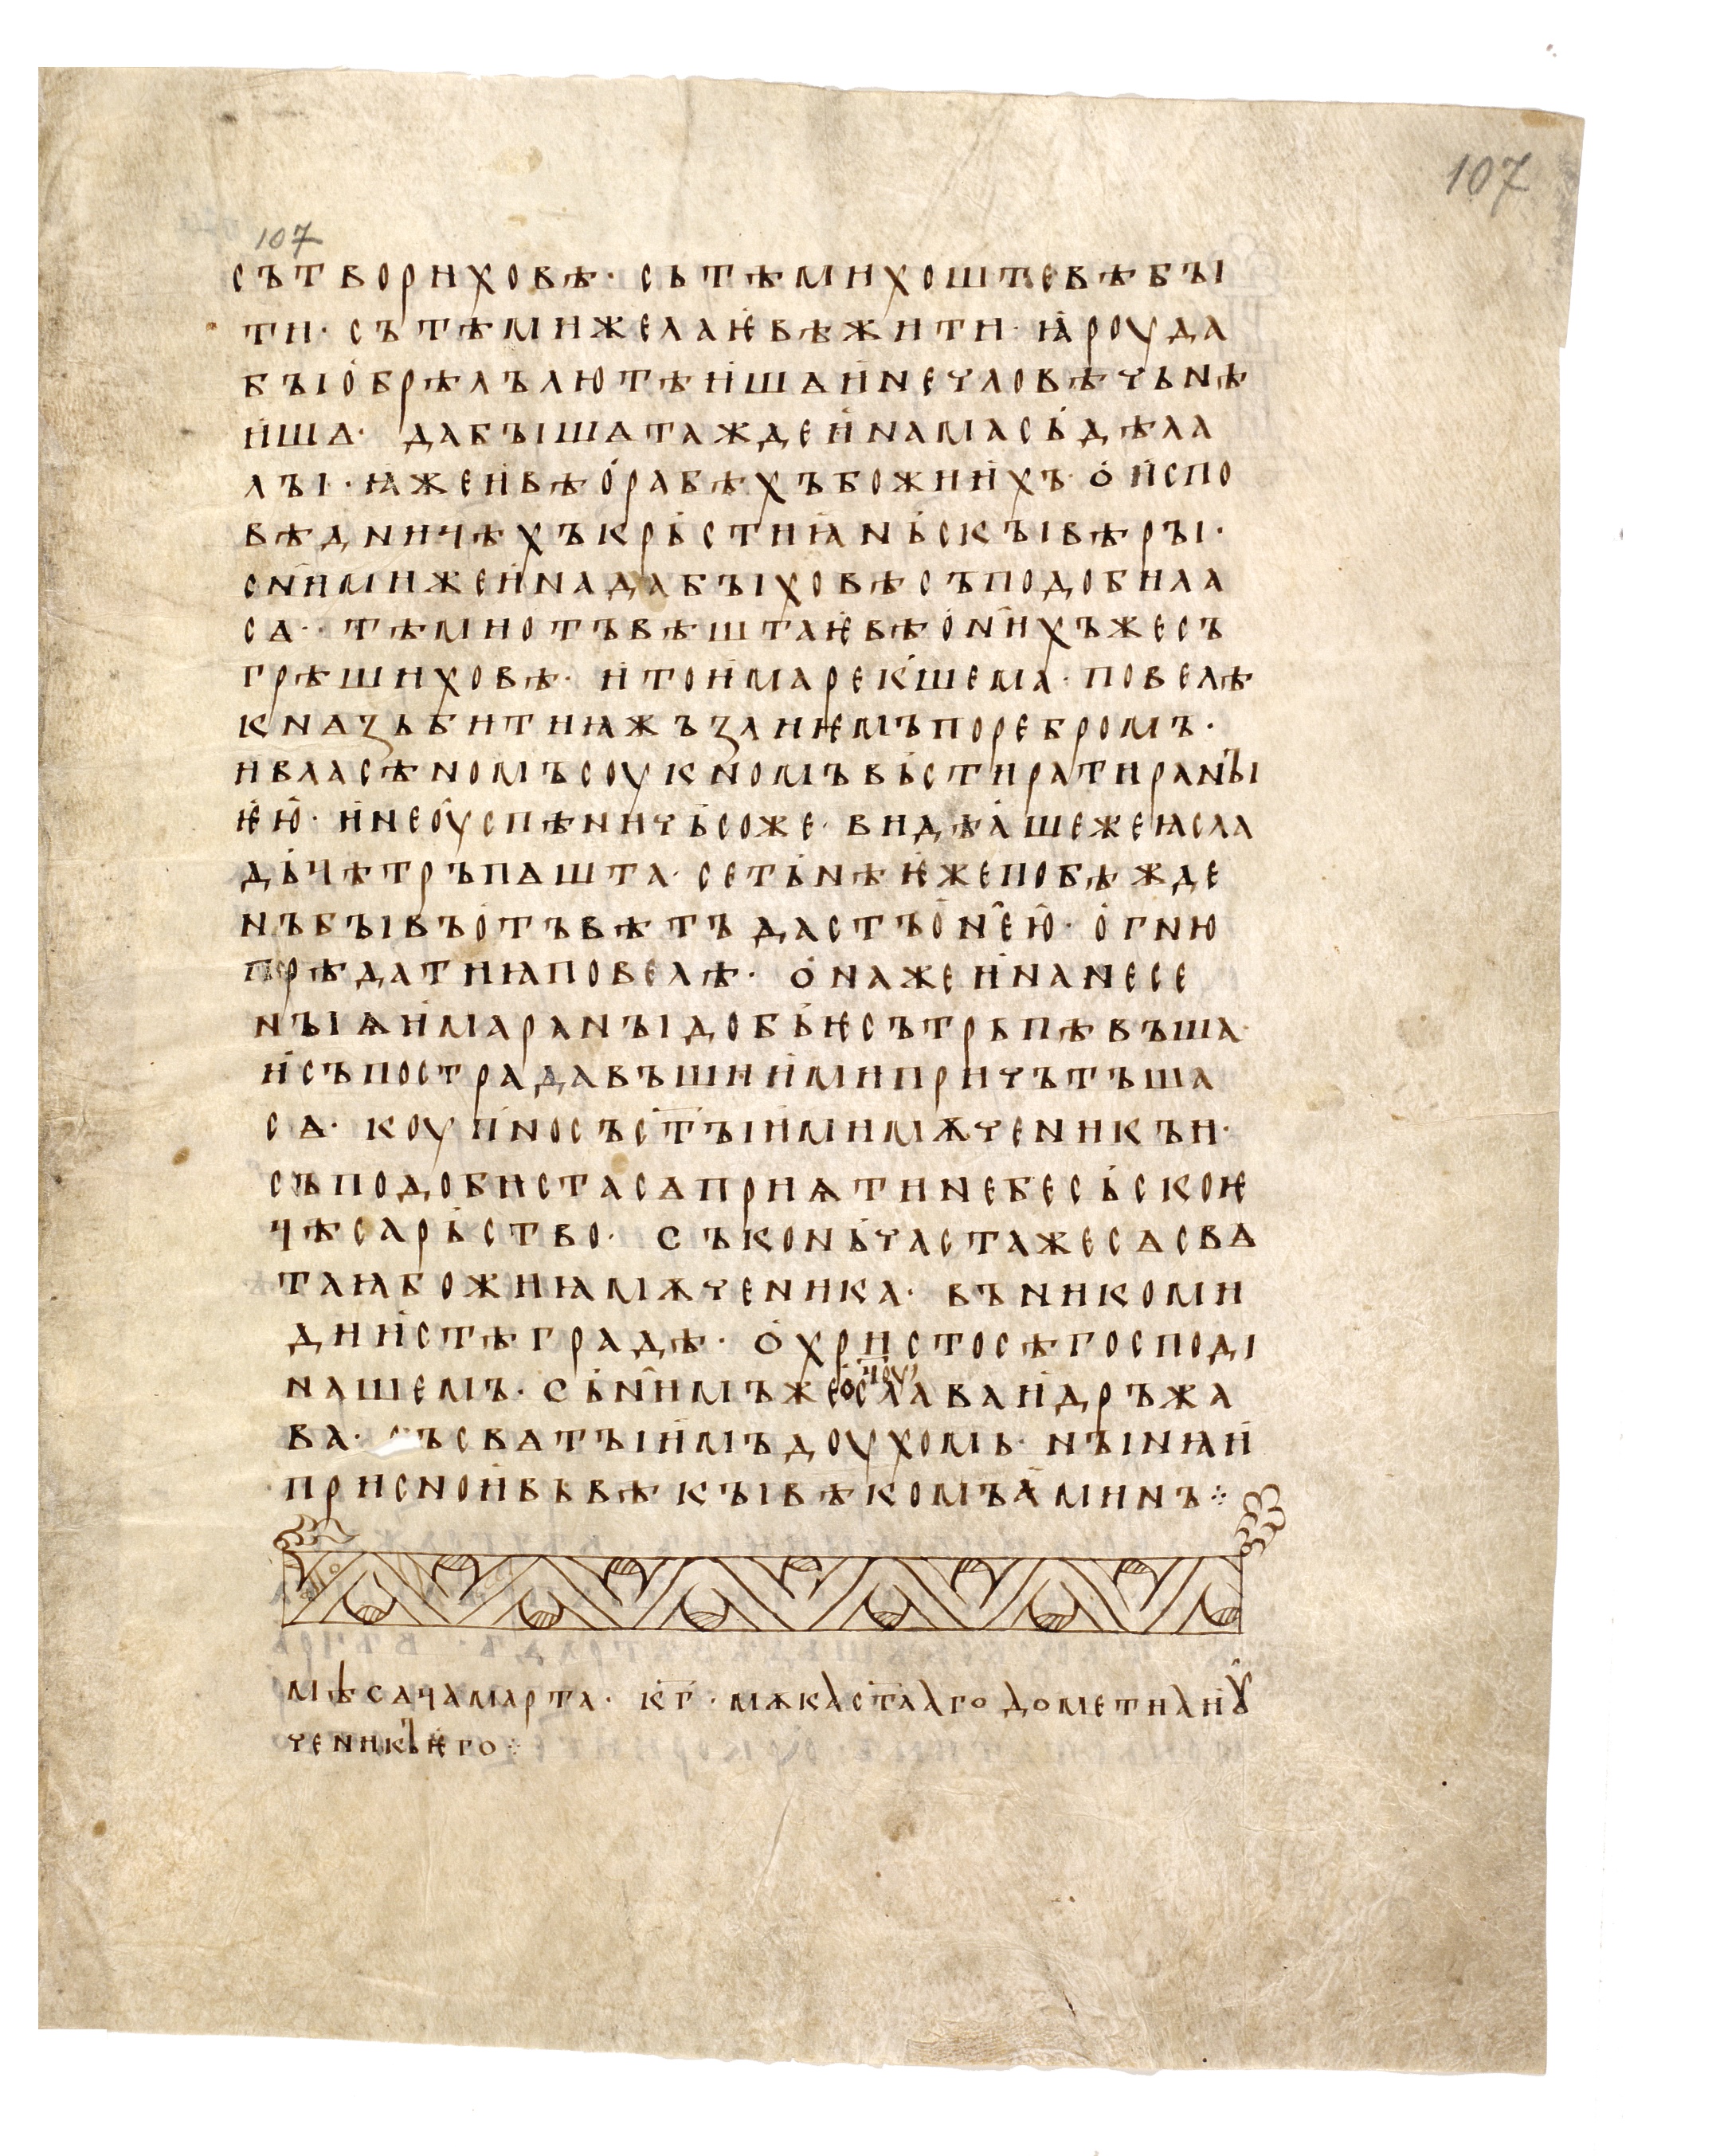 107
107
сътвориховѣ· сь тѣми хоштевѣ бы
ти· съ тѣми желаѥвѣ жити· ꙗ роуда
бы обрѣлъ лютѣиша и неуловѣчьнѣ
иша· да бышѧ таждеи нама сьдѣла
лы· ꙗже и вѣ о рабѣхъ божиихъ· о испо
вѣдничѣхъ крьстиꙗньскы вѣры·
с н҄ими же и на да быховѣ съподобила
сѧ· тѣмь отъвѣштаѥвѣ о н҄ихъже съ
грѣшиховѣ· и то има рекъшема· повелѣ
кнѧзь бити ꙗ жъзлиѥмъ по ребромъ·
и власѣномъ соукномъ вьстирати раны
ѥю҄· и не оуспѣ ничьсоже· видѣѧше же ꙗ сла
дъчѣ трьпѧшта· сетьнѣѥ же побѣжде
нъ бывъ отъвѣтъ дастъ о н҄ею҄· огню
прѣдати ꙗ повелѣ· она же и нанесе
ныѩ има раны добьѥ сътрьпѣвъша·
и съпострадавъши ими причьтъша
сѧ· коупно съ ст҃ыими мѫченикы·
съподобиста сѧ приѩти небесьскоѥ
чѣсарьство· съконьчаста же сѧ свѧ
таꙗ божиꙗ мѫченика· въ никоми
диистѣ градѣ· о христосѣ господі
нашемъ· сь н҄имъже оц҃оу слава и дръжа
ва· съ свѧтыимъ доухомь· нынꙗ и
присно и вь вѣкы вѣкомъ аминъ ⁘
мѣсѧца марта· к҃г· мѫка ст҃ааго дометиꙗ и оу
ченикъ ѥго ⁘